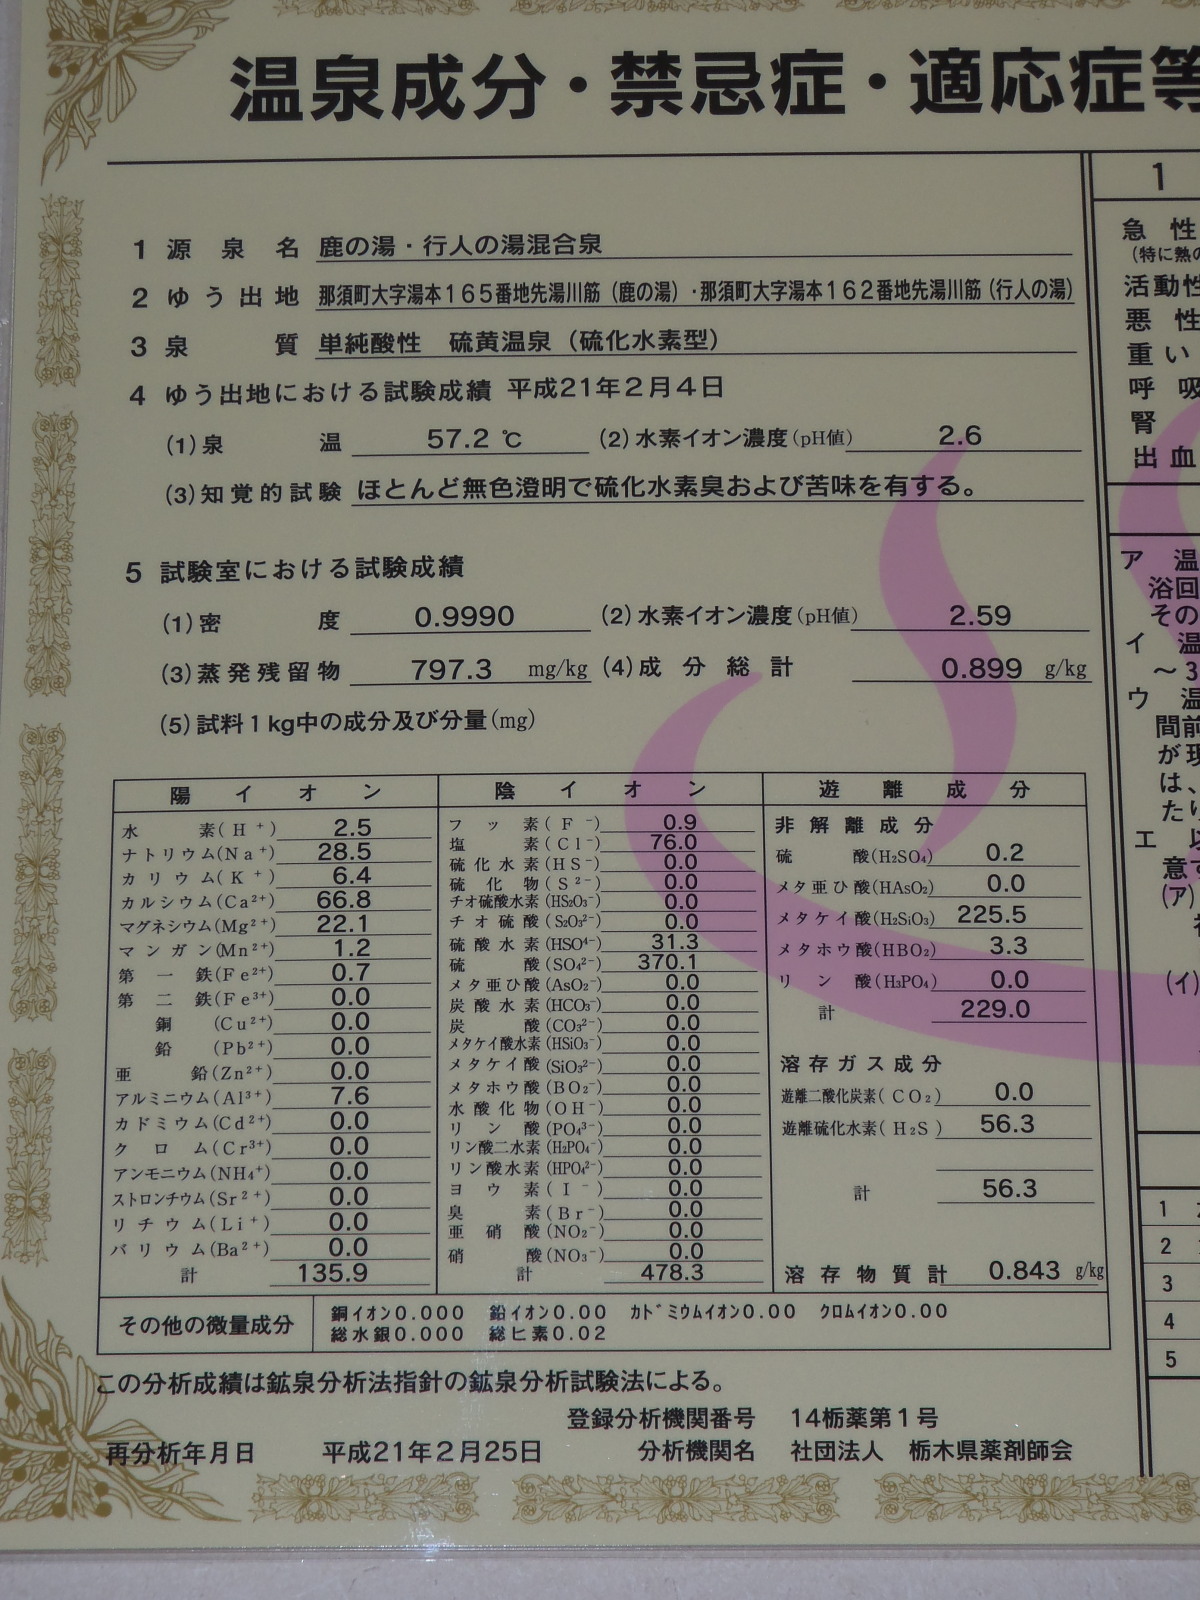 温泉成分・禁忌症・適応症等
1 源泉名 鹿の湯・行人の湯混合泉
2 ゆう出地 那須町大字湯本165番地先湯川筋（鹿の湯）・那須町大字湯本162番地先湯川筋（行人の湯）
3 泉質 単純酸性 硫黄温泉（硫化水素型）
4 ゆう出地における試験成績 平成21年2月4日
(1)泉温 57.2 ℃ (2)水素イオン濃度(pH値) 2.6
(3)知覚的試験 ほとんど無色澄明で硫化水素臭および苦味を有する。
5 試験室における試験成績
(1)密度 0.9990 (2)水素イオン濃度(pH値) 2.59
(3)蒸発残留物 797.3 mg/kg (4)成分総計 0.899 g/kg
(5)試料1kg中の成分及び分量(mg)
陽イオン
水素(H⁺) 2.5
ナトリウム(Na⁺) 28.5
カリウム(K⁺) 6.4
カルシウム(Ca²⁺) 66.8
マグネシウム(Mg²⁺) 22.1
マンガン(Mn²⁺) 1.2
第一鉄(Fe²⁺) 0.7
第二鉄(Fe³⁺) 0.0
銅(Cu²⁺) 0.0
鉛(Pb²⁺) 0.0
亜鉛(Zn²⁺) 0.0
アルミニウム(Al³⁺) 7.6
カドミウム(Cd²⁺) 0.0
クロム(Cr³⁺) 0.0
アンモニウム(NH₄⁺) 0.0
ストロンチウム(Sr²⁺) 0.0
リチウム(Li⁺) 0.0
バリウム(Ba²⁺) 0.0
計 135.9
陰イオン
フッ素(F⁻) 0.9
塩素(Cl⁻) 76.0
硫化水素(HS⁻) 0.0
硫化物(S²⁻) 0.0
チオ硫酸水素(HS₂O₃⁻) 0.0
チオ硫酸(S₂O₃²⁻) 0.0
硫酸水素(HSO⁴⁻) 31.3
硫酸(SO₄²⁻) 370.1
メタ亜ひ酸(AsO₂⁻) 0.0
炭酸水素(HCO₃⁻) 0.0
炭酸(CO₃²⁻) 0.0
メタケイ酸水素(HSiO₃⁻) 0.0
メタケイ酸(SiO₃²⁻) 0.0
メタホウ酸(BO₂⁻) 0.0
水酸化物(OH⁻) 0.0
リン酸(PO₄³⁻) 0.0
リン酸二水素(H₂PO₄⁻) 0.0
リン酸水素(HPO₄²⁻) 0.0
ヨウ素(I⁻) 0.0
臭素(Br⁻) 0.0
亜硝酸(NO₂⁻) 0.0
硝酸(NO₃⁻) 0.0
計 478.3
遊離成分
非解離成分
硫酸(H₂SO₄) 0.2
メタ亜ひ酸(HAsO₂) 0.0
メタケイ酸(H₂SiO₃) 225.5
メタホウ酸(HBO₂) 3.3
リン酸(H₃PO₄) 0.0
計 229.0
溶存ガス成分
遊離二酸化炭素(CO₂) 0.0
遊離硫化水素(H₂S) 56.3
計 56.3
溶存物質計 0.843 g/kg
その他の微量成分
銅イオン0.000 鉛イオン0.00 カドミウムイオン0.00 クロムイオン0.00
総水銀0.000 総ヒ素0.02
この分析成績は鉱泉分析法指針の鉱泉分析試験法による。
登録分析機関番号 14栃薬第1号
再分析年月日 平成21年2月25日 分析機関名 社団法人 栃木県薬剤師会
1
急性
(特に熱の
活動性
悪性
重い
呼吸
腎
出血
ア 温
浴回
その
イ 温
～3
ウ 温
間前
が現
は、
たり
エ 以
意す
(ア)
(イ)
1
2
3
4
5